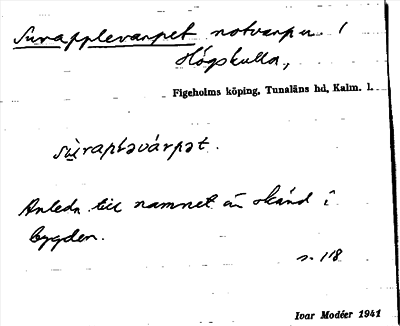 Surapplevarpet notvarp u. i
Högskulla,
Figeholms köping, Tunaläns hd, Kalm. l.
sùrapləvárpət.
Anledn. till namnet är okänd i
bygden.
s. 118
Ivar Modéer 1941